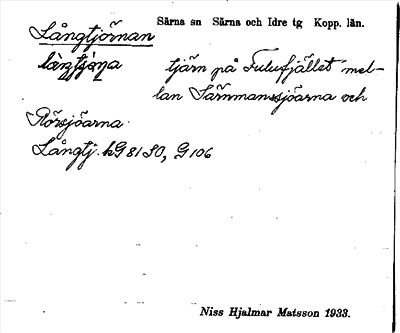 Långtjörnan Särna sn Särna och Idre tg Kopp. län.
långtjöṇa tjärn på Fulufjället mel-
lan Särnmanssjöarna och
Rörsjöarna.
Långtj. kG 81 SO, G 106
Niss Hjalmar Matsson 1933.